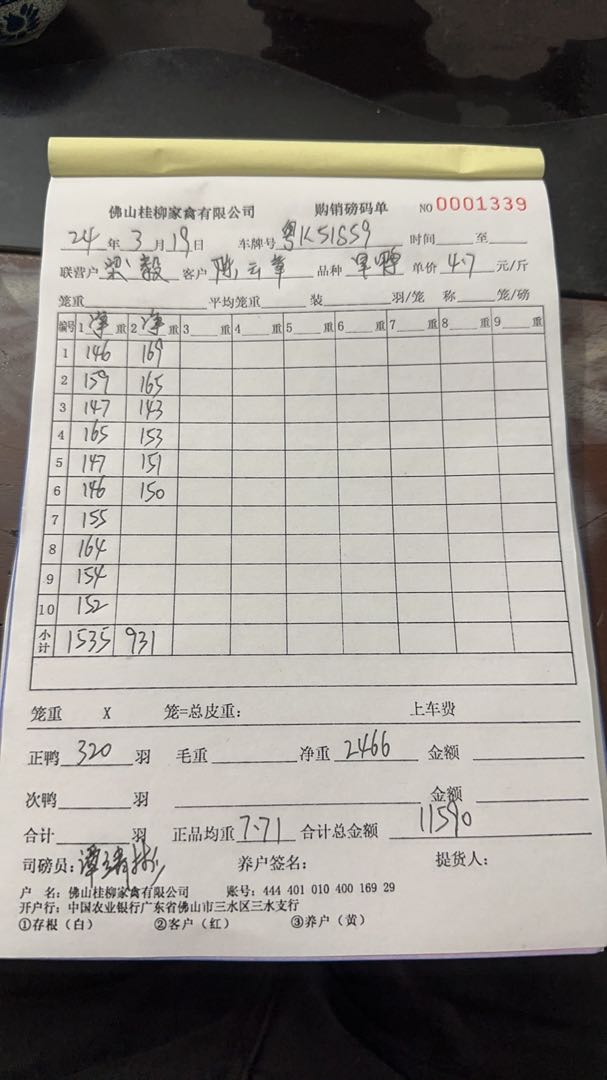 佛山桂柳家禽有限公司 购销磅码单 NO 0001339
24年3月19日 车牌号 粤K51S59 时间 至
联营户 梁毅 客户 陈云章 品种 单价 4.7 元/斤
笼重 平均笼重 装 羽/笼 称 笼/磅
编号 1 净 重 2 净 重 3 重 4 重 5 重 6 重 7 重 8 重 9 重
1 146 169
2 159 165
3 147 143
4 165 153
5 147 151
6 146 150
7 155
8 164
9 154
10 152
小计 1535 931
笼重 X 笼=总皮重: 上车费
正鸭 320 羽 毛重 净重 2466 金额
次鸭 羽 金额
合计 羽 正品均重 7.71 合计总金额 11590
司磅员: 养户签名: 提货人:
户 名: 佛山桂柳家禽有限公司 账号: 444 401 010 400 169 29
开户行: 中国农业银行广东省佛山市三水区三水支行
①存根（白） ②客户（红） ③养户（黄）